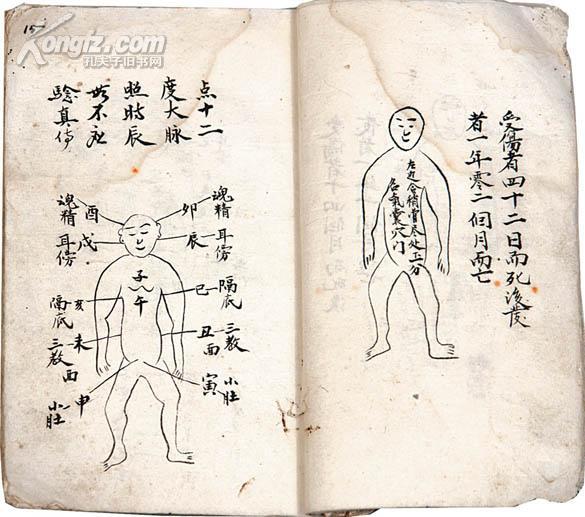 受傷者四十二日而死後發
者一年零二個月而亡
左边仓稍骨尽处五分
名氣囊穴门
点十二
度大脉
照時辰
毋不在
驗真傳
魂精
卯
耳傍
辰
隔底
巳
三教
丑
面
小肚
寅
子
午
魂精
酉
耳傍
戌
隔底
亥
三教
未
面
申
小肚
15
Kongfz.com
孔夫子旧书网